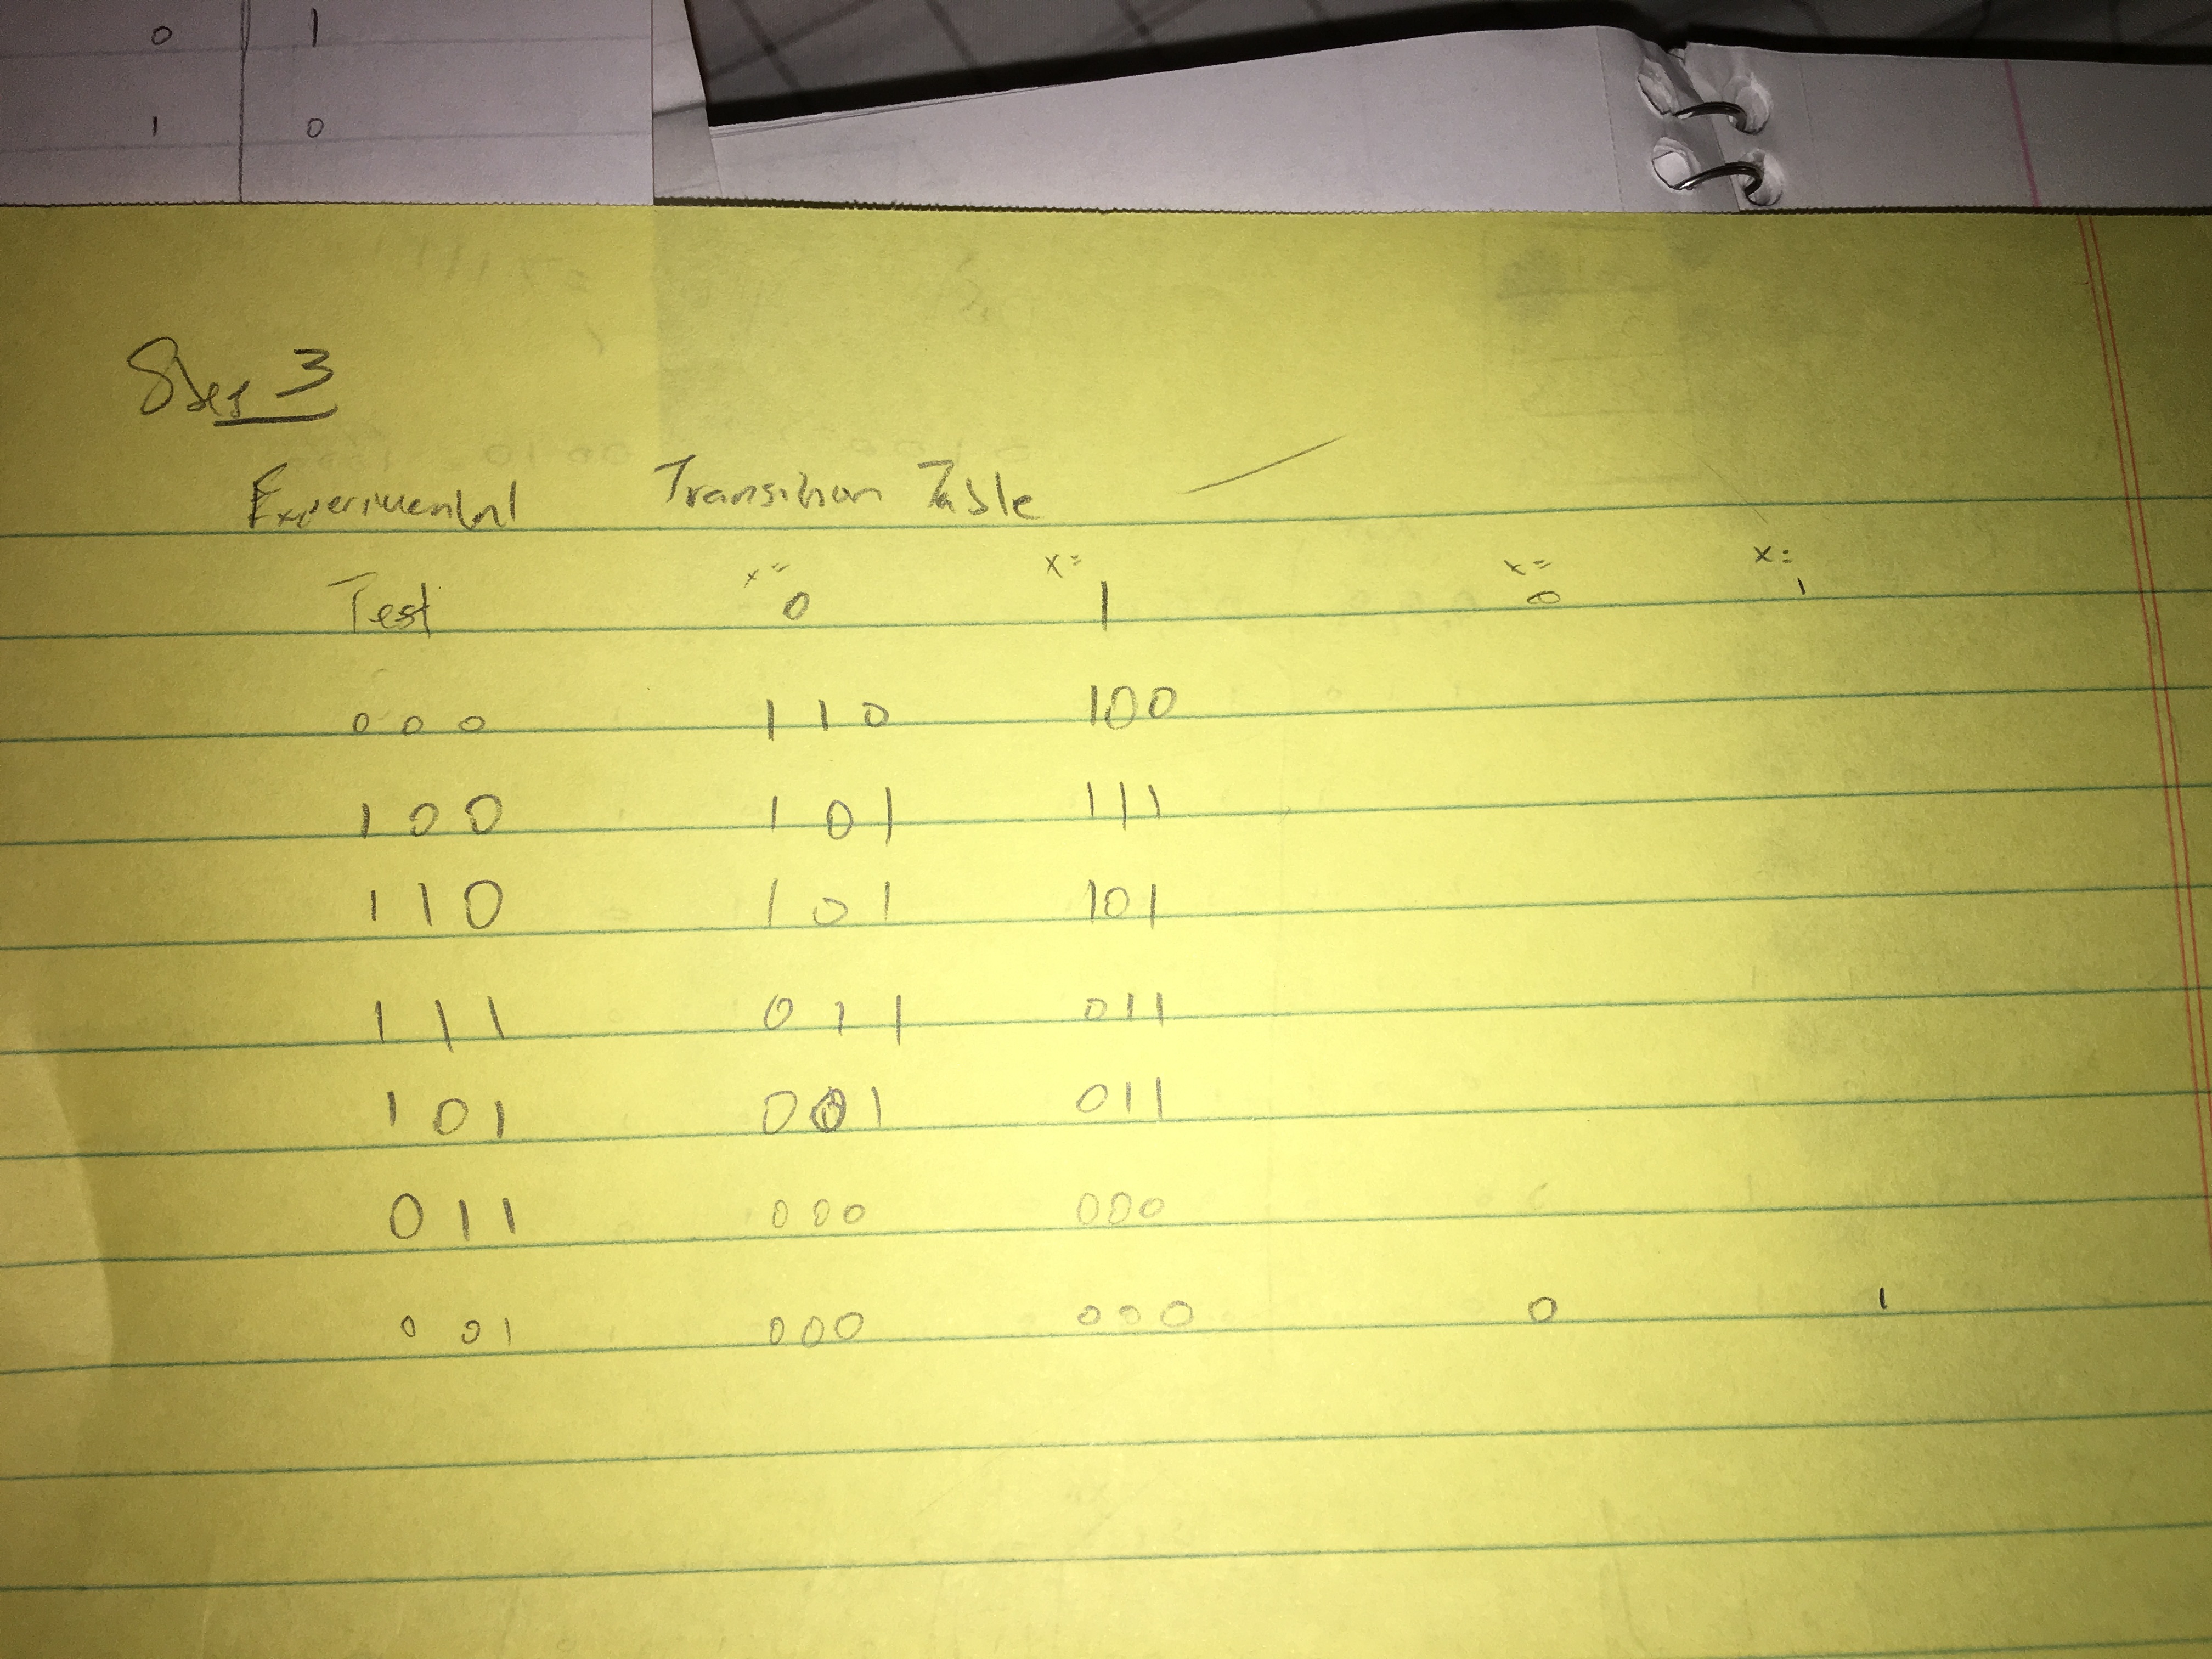 3
Experimental Transition Table
x= x= x= x=
Test 0 1 0 1
0 0 0 1 1 0 1 0 0
1 0 0 1 0 1 1 1 1
1 1 0 1 0 1 1 0 1
1 1 1 0 1 1 0 1 1
1 0 1 0 0 1 0 1 1
0 1 1 0 0 0 0 0 0
0 0 1 0 0 0 0 0 0 0 1
0 1
1 0